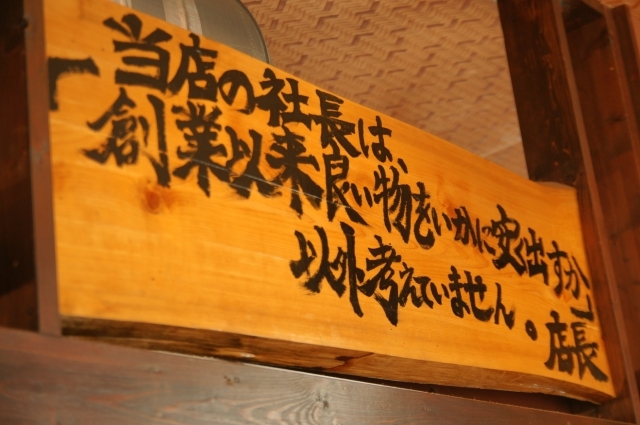 「当店の社長は、
創業以来良い物をいかに安く出すか」
以外考えていません。店長